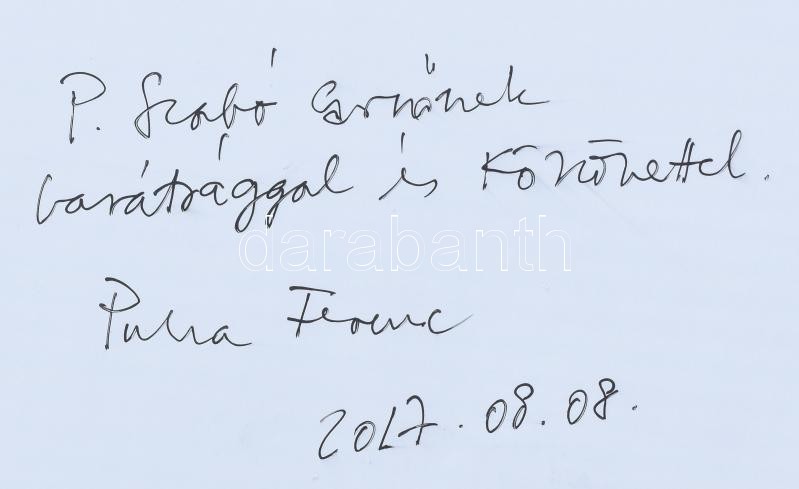 P. Szabó Ernőnek
barátsággal és köszönettel.
darabanth
Puha Ferenc
2017.08.08.